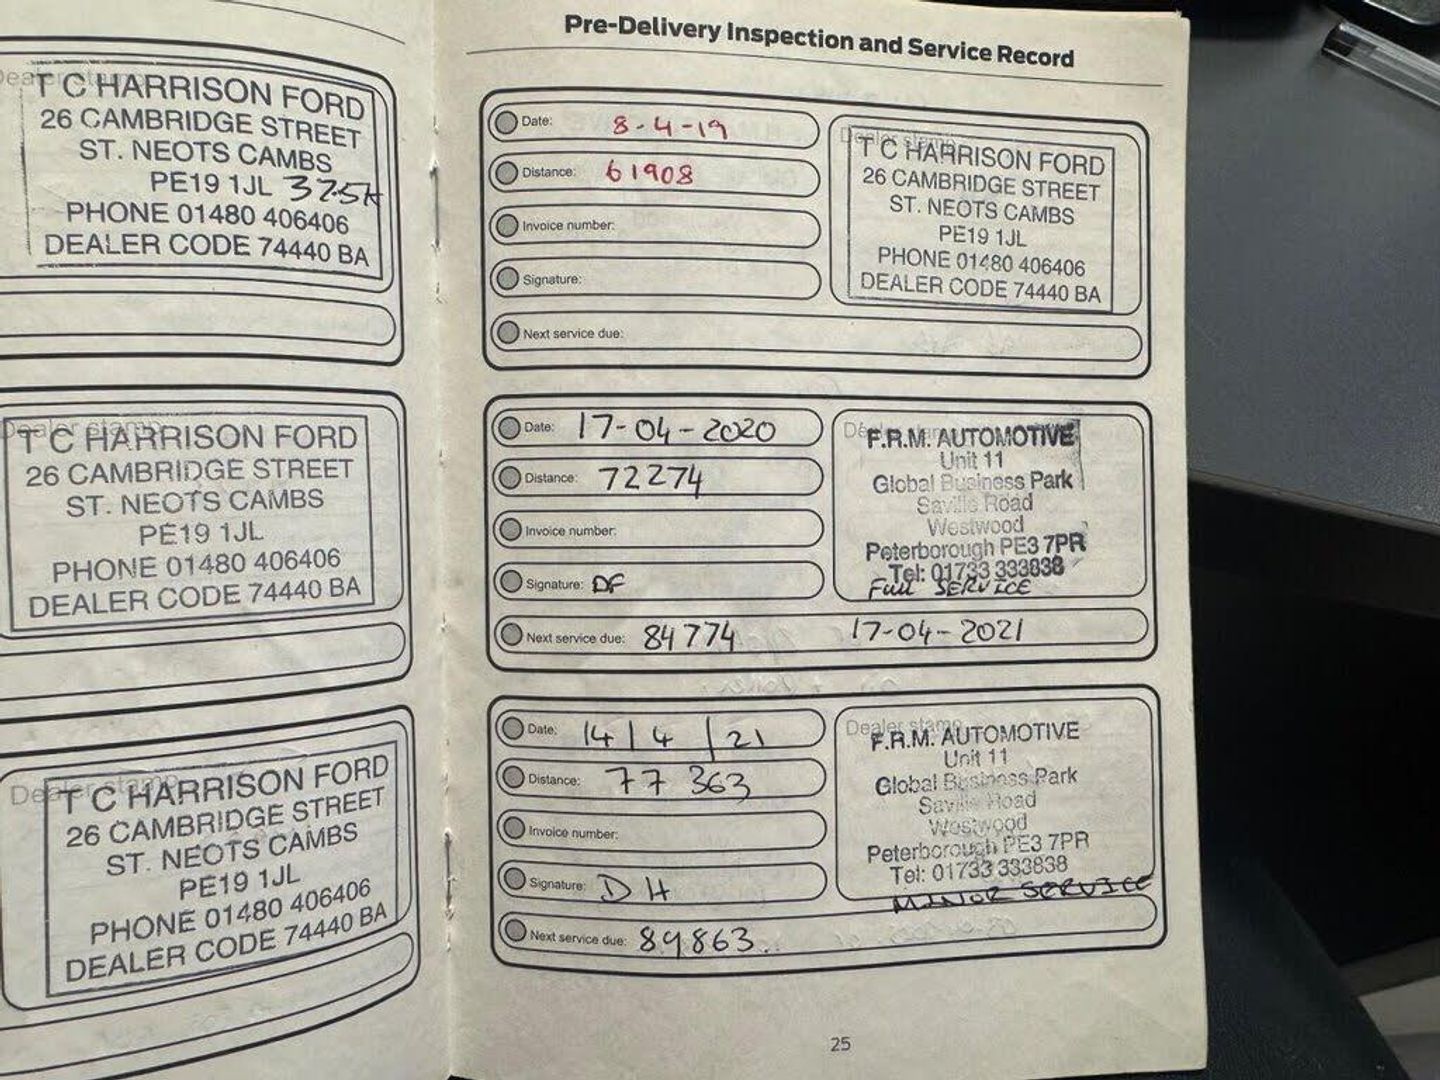 Dealer stamp
T C HARRISON FORD
26 CAMBRIDGE STREET
ST. NEOTS CAMBS
PE19 1JL 32.5K
PHONE 01480 406406
DEALER CODE 74440 BA
Dealer stamp
T C HARRISON FORD
26 CAMBRIDGE STREET
ST. NEOTS CAMBS
PE19 1JL
PHONE 01480 406406
DEALER CODE 74440 BA
Dealer stamp
T C HARRISON FORD
26 CAMBRIDGE STREET
ST. NEOTS CAMBS
PE19 1JL
PHONE 01480 406406
DEALER CODE 74440 BA
Pre-Delivery Inspection and Service Record
Date: 8-4-19
Distance: 61908
Invoice number:
Signature:
Next service due:
Dealer stamp
T C HARRISON FORD
26 CAMBRIDGE STREET
ST. NEOTS CAMBS
PE19 1JL
PHONE 01480 406406
DEALER CODE 74440 BA
Date: 17-04-2020
Distance: 72274
Invoice number:
Signature: DF
Next service due: 84774 17-04-2021
F.R.M. AUTOMOTIVE
Unit 11
Global Business Park
Saville Road
Westwood
Peterborough PE3 7PR
Tel: 01733 333838
FULL SERVICE
Date: 14/4/21
Distance: 77 363
Invoice number:
Signature: DH
Next service due: 89863
Dealer stamp
F.R.M. AUTOMOTIVE
Unit 11
Global Business Park
Saville Road
Westwood
Peterborough PE3 7PR
Tel: 01733 333838
MINOR SERVICE
25